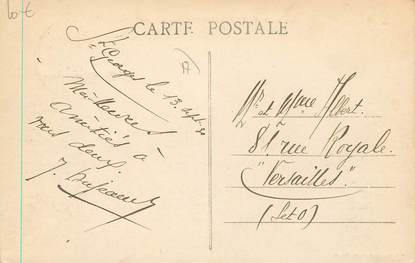 10 €
CARTE POSTALE
St Georges le 13 sept 30
Meilleures
amitiés à
vous deux.
Mr et Mme Albert.
81 rue Royale.
"Versailles".
(S et O)